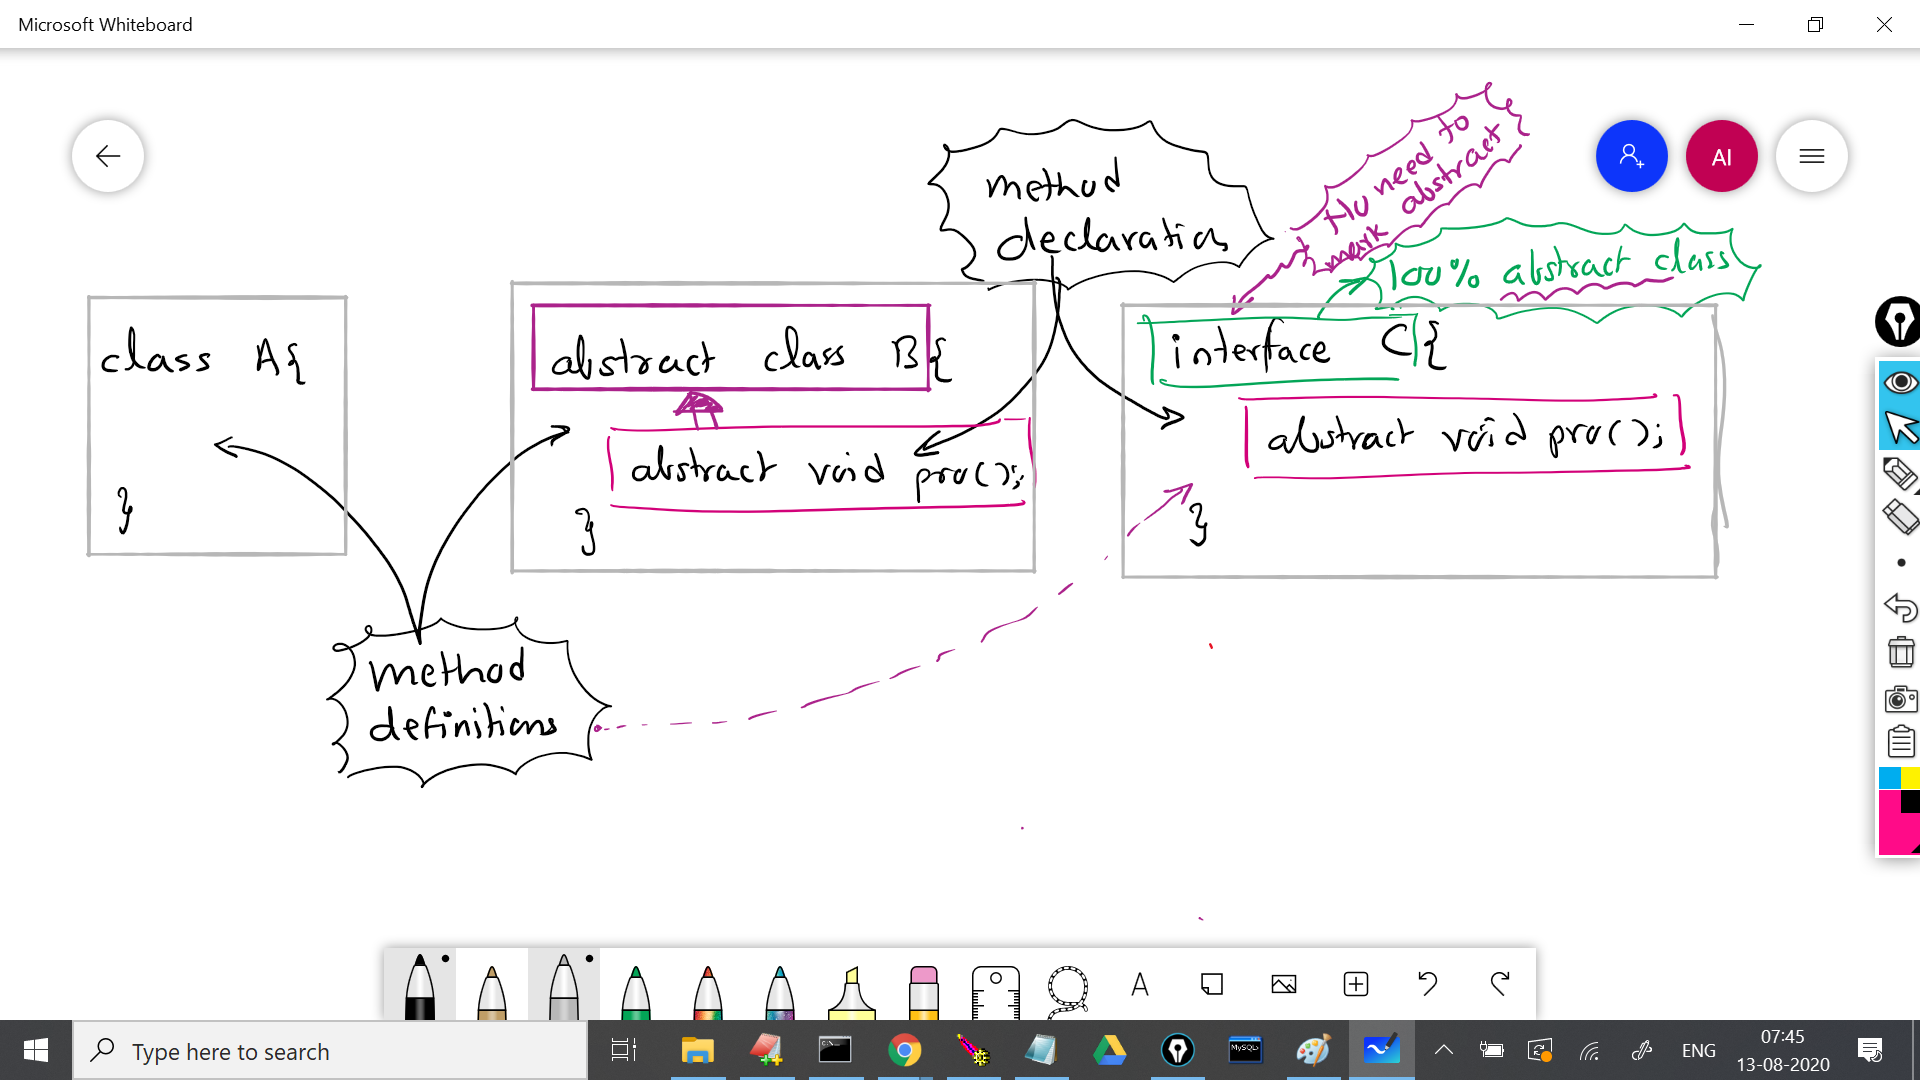 Microsoft Whiteboard
AI
No need to
mark abstract
method
declaration
100% abstract class
class A{
}
abstract class B{
abstract void pro();
}
interface C{
abstract void pro();
}
method
definitions
A
Type here to search
MySQL
ENG
07:45
13-08-2020